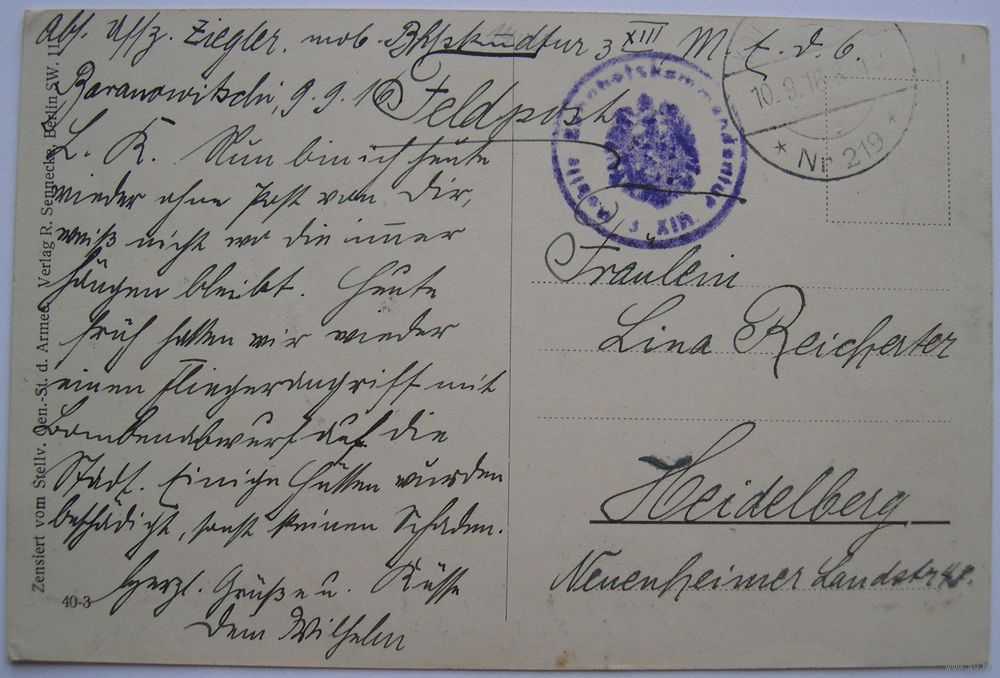 Abs. Uffz. Ziegler. mob. Bhfskmdtur 3 XIII, M. E. D. 6.
Baranowitschi, 9.9.16
Feldpost
L. K. Nun bin ich heute
wieder ohne Post von Dir,
weiß nicht wo die immer
hängen bleibt. Heute
früh hatten wir wieder
einen Fliegerangriff mit
Bombenabwurf auf die
Stadt. Einige Hütten wurden
beschädigt, sonst keinen Schaden.
Herzl. Grüße u. Küsse
Dein Wilhelm
Fräulein
Lina Reicherter
Heidelberg
Neuenheimer Landstr 48.
Bahnhofskommandantur
XIII
10.9.16
* Nr 219 *
Zensiert vom Stellv. Gen.-St. d. Armee. Verlag R. Sennecke, Berlin SW. 11
40-3